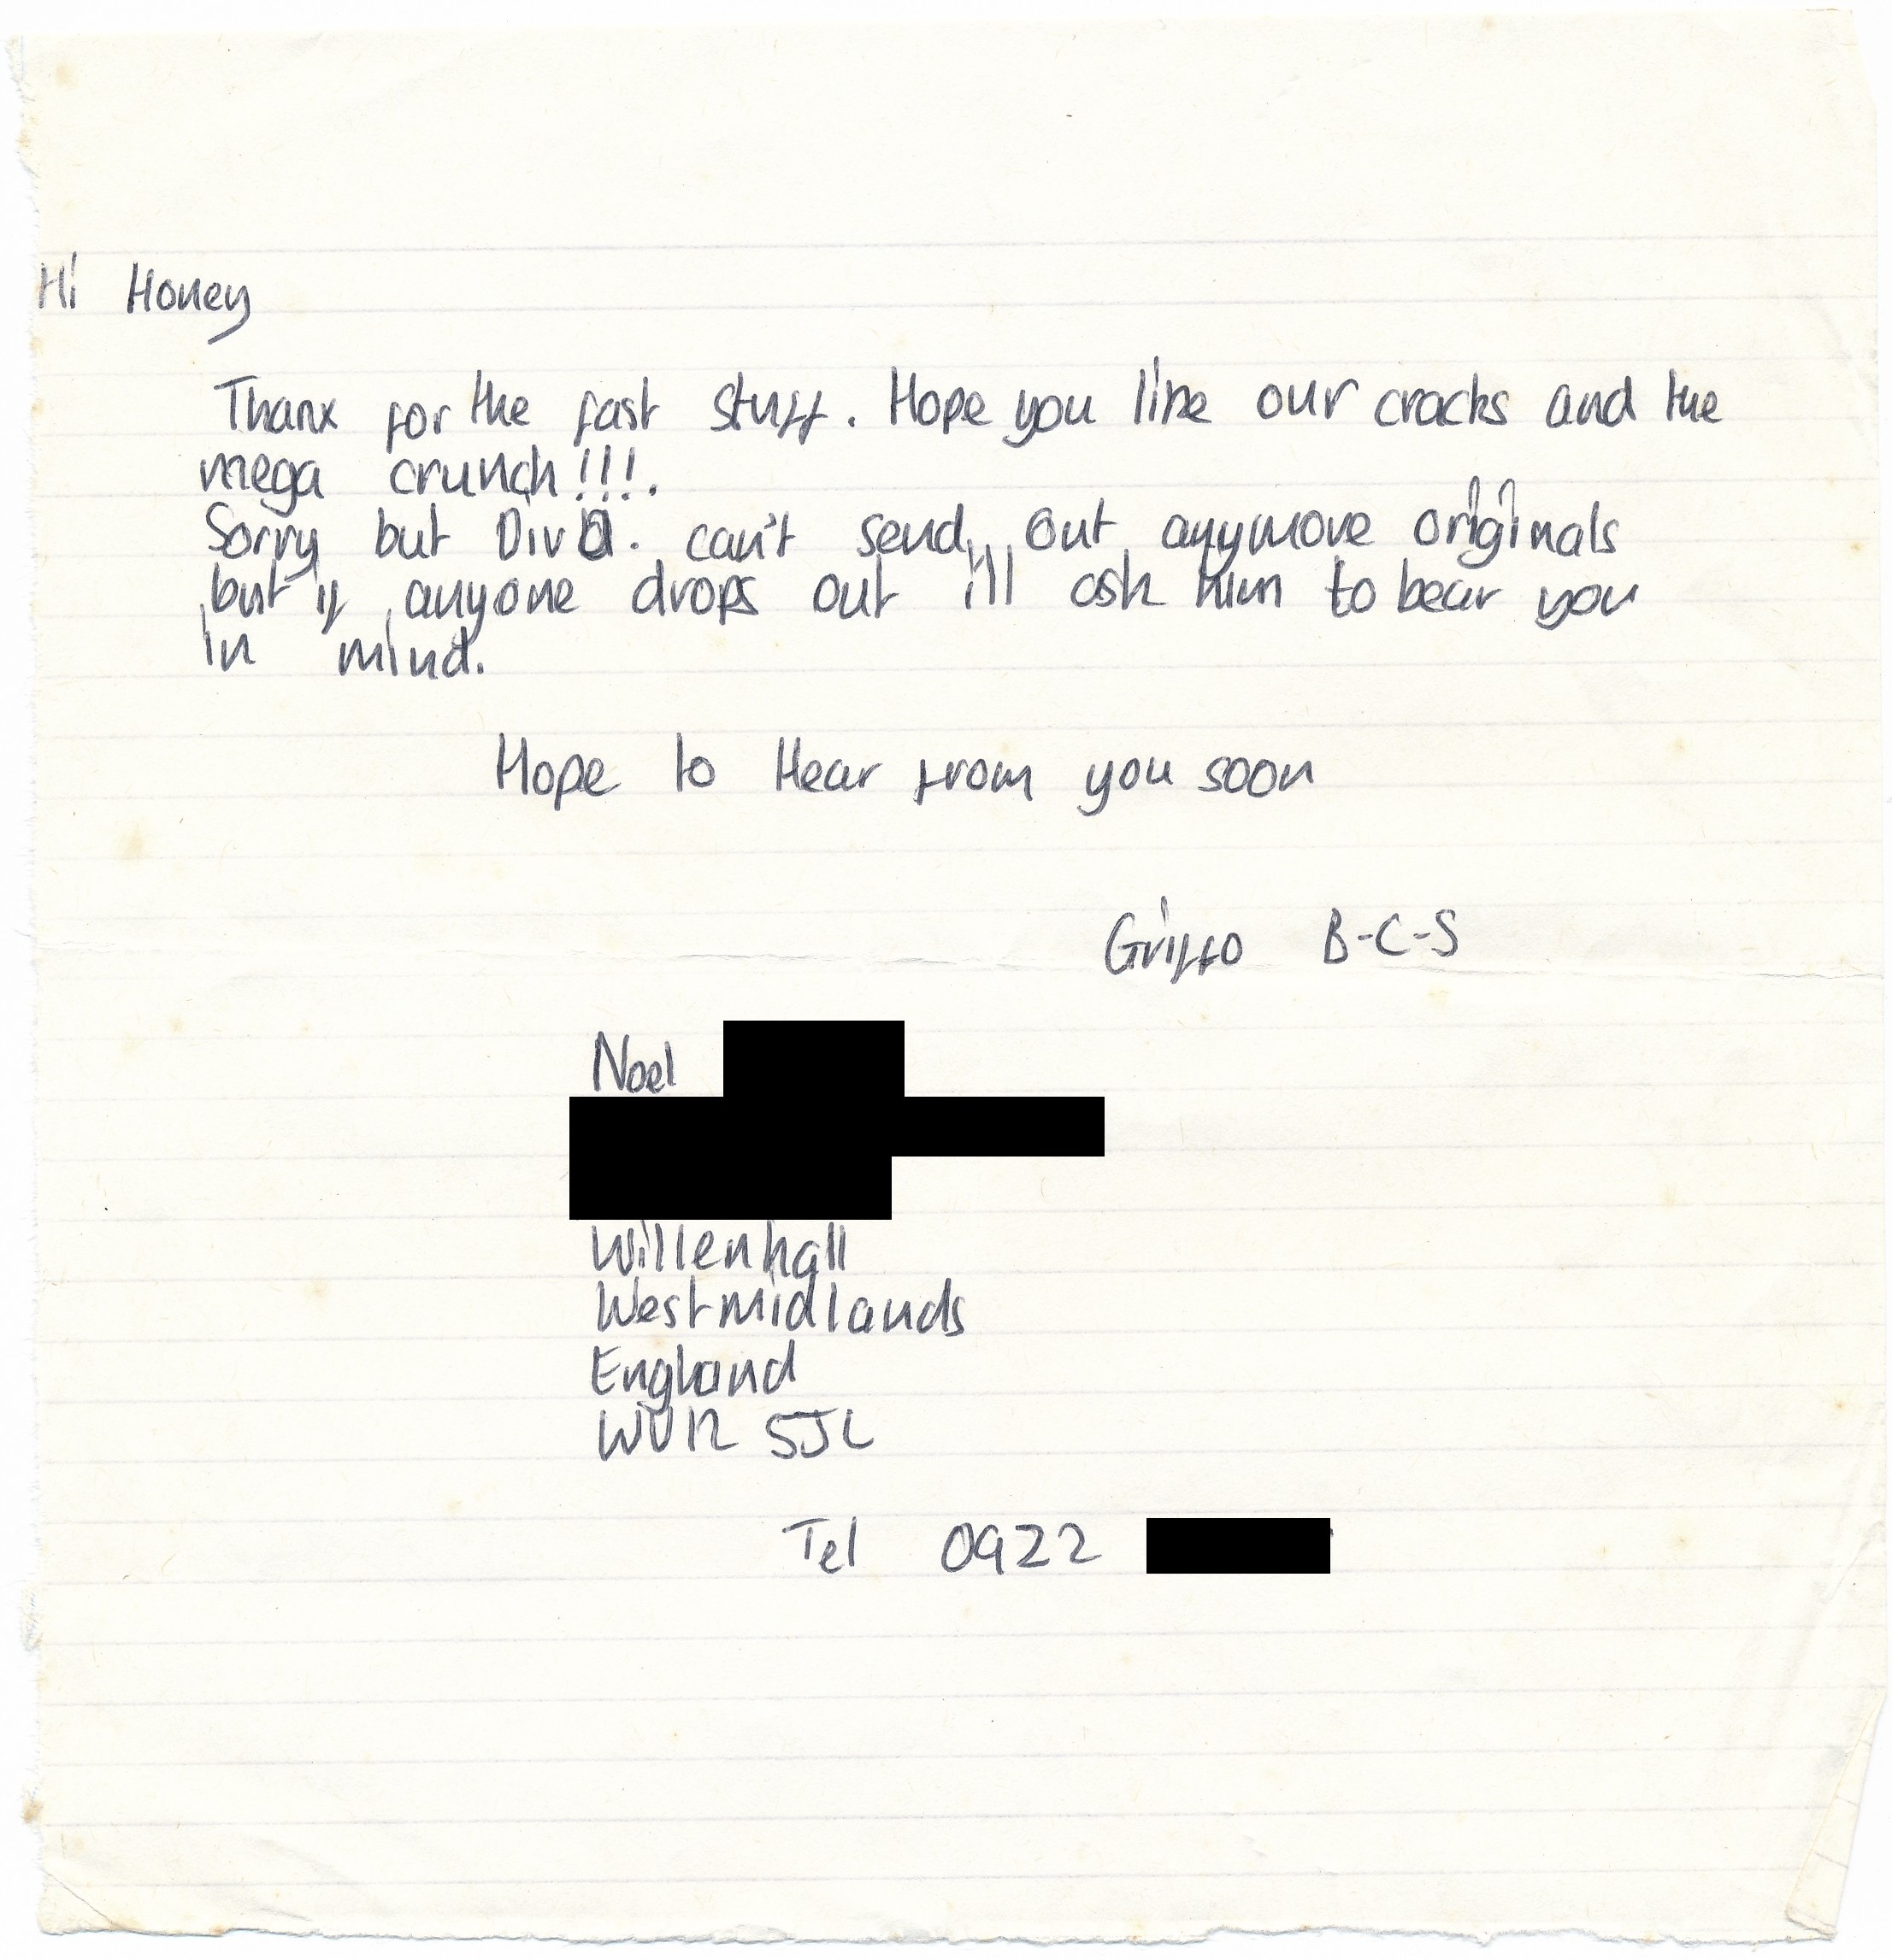 Hi Honey
Thanx for the fast stuff. Hope you like our cracks and the
mega crunch!!!.
Sorry but Diva. can't send out anymore originals
but if anyone drops out i'll ask him to bear you
in mind.
Hope to Hear from you soon
Griffo B-C-S
Noel
Willenhall
Westmidlands
England
WV12 5JL
Tel 0922